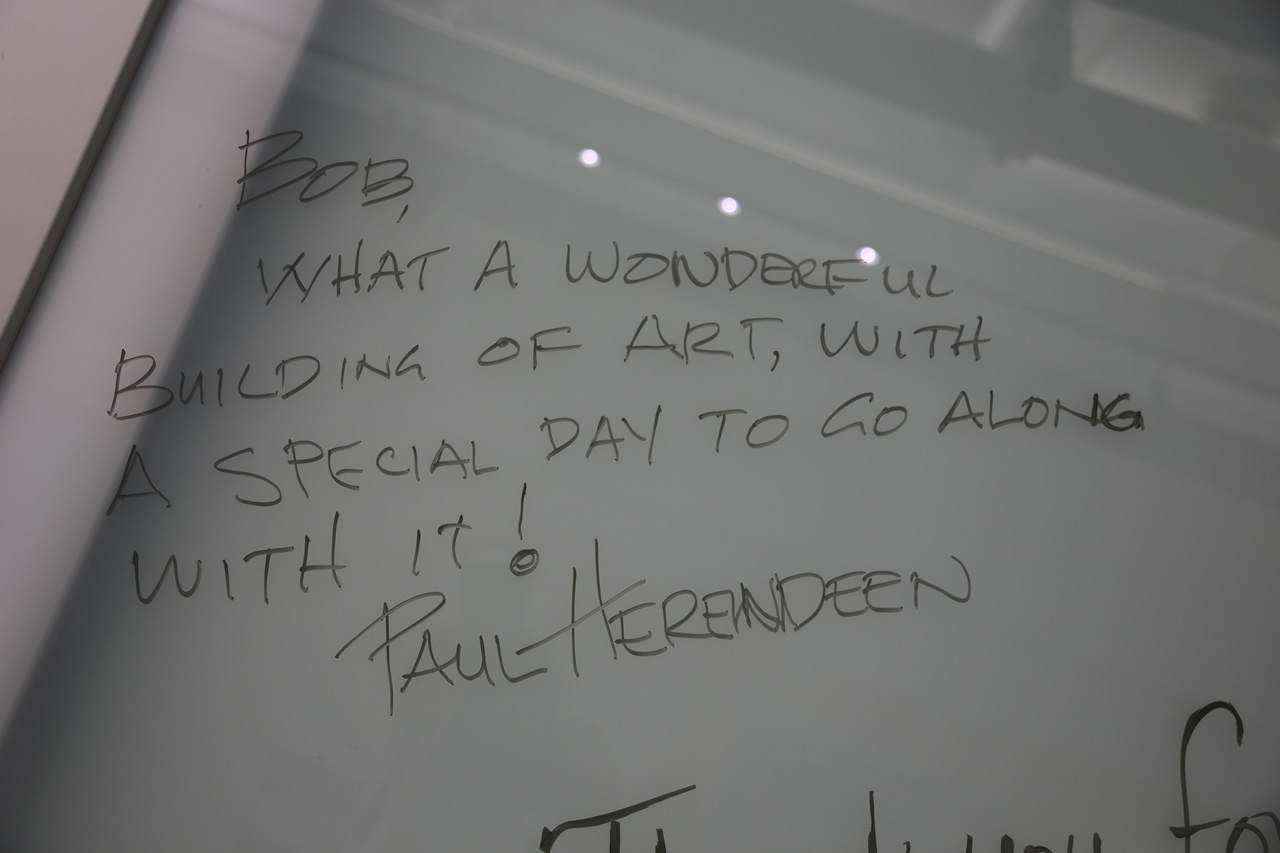 BOB,
WHAT A WONDERFUL
BUILDING OF ART, WITH
A SPECIAL DAY TO GO ALONG
WITH IT!
PAUL HERENDEEN